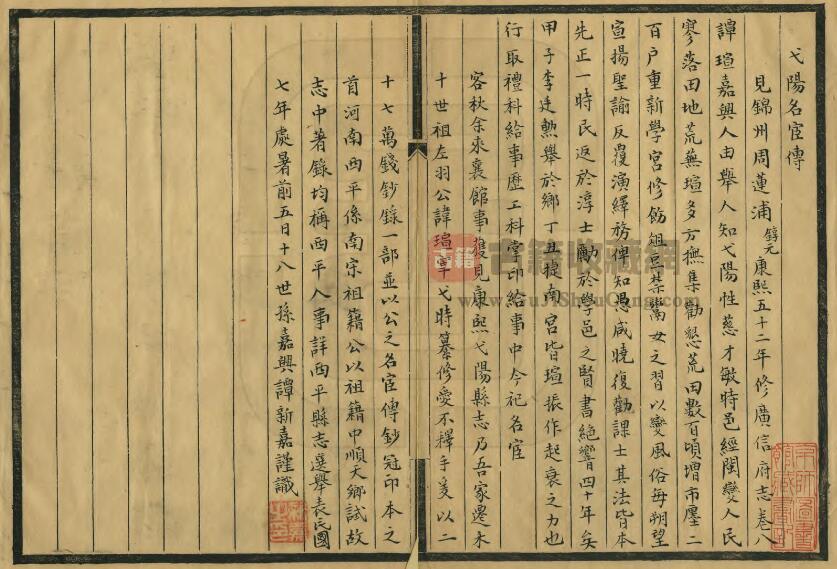 弋陽名宦傳
見錦州周蓮浦錞元康熙五十二年修廣信府志卷八
譚瑄嘉興人由舉人知弋陽性慈才敏時邑經閩變人民
寥落田地荒蕪瑄多方撫集勸懇荒田數百頃增市廛二
百戶重新學宮修飭俎豆禁鬻女之習以變風俗每朔望
宣揚聖諭反覆演繹務俾知愚咸曉復勸課士其法皆本
先正一時民返於淳士勵於學邑之賢書絕響四十年矣
甲子李廷勲舉於鄉丁丑捷南宮皆瑄振作起衰之力也
行取禮科給事歷工科掌印給事中今祀名宦
客秋余來襄館事獲見康熙弋陽縣志乃吾家遷禾
十世祖左羽公諱瑄宰弋時纂修愛不釋手爰以二
十七萬錢鈔錄一部並以公之名宦傳鈔冠印本之
首河南西平係南宋祖籍公以祖籍中順天鄉試故
志中著錄均稱西平人事詳西平縣志選舉表民國
七年處暑前五日十八世孫嘉興譚新嘉謹識
古籍
古籍收藏網
www.GuJiShouCang.com